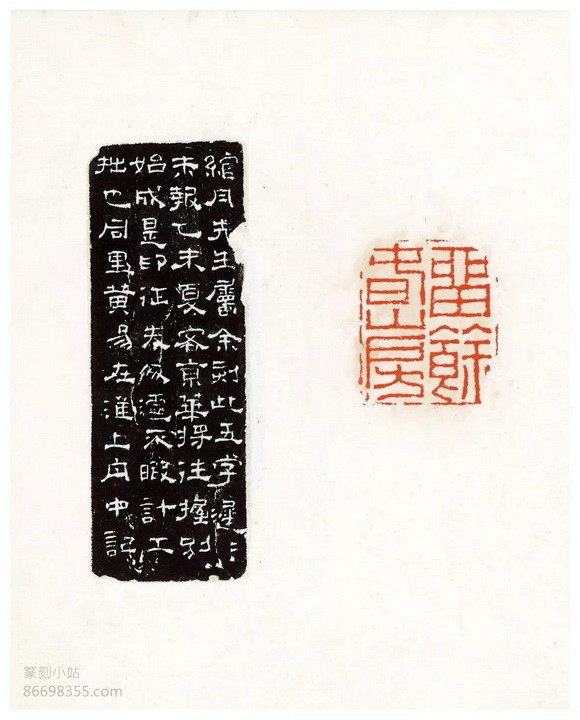 留餘
春山房
綰月先生屬余刻此五字遲〻
未報乙未夏客京華將往握別
始成是印征不暇計工
拙也同里黃易在淮上舟中記
篆刻小站
86698355.com